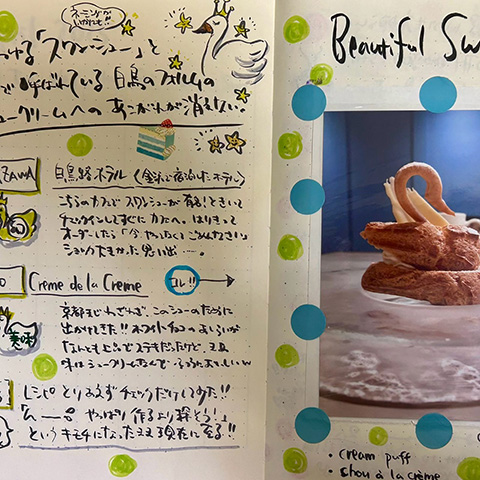 ネーミングが
かわいい!!
つける「スワンシュー」と
で呼ばれている 白鳥のフォルムの
シュークリームへのあこがれが消えない。
ZAWA
白鳥路ホテル（金沢で宿泊したホテル）
こちらのカフェで スワンシューが有る!ときいて
チェックインしてすぐにカフェへ。はりきって
オーダーしたら「今やってなくてごめんなさい」
ショックだった思い出……
O
Creme de la Creme
コレ!!
京都までわざわざ、このシューのために
出かけてきた!! ホワイトチョコのよろいが
なんとも上品でステキだったけど、
味はシュークリームなんで
美味
レシピとりあえずチェックだけしてみた!!
「んーー。やっぱり作るより探そう!」
というキモチになったまま現在に至る!!
Beautiful Sw
・cream puff
・chou à la crème